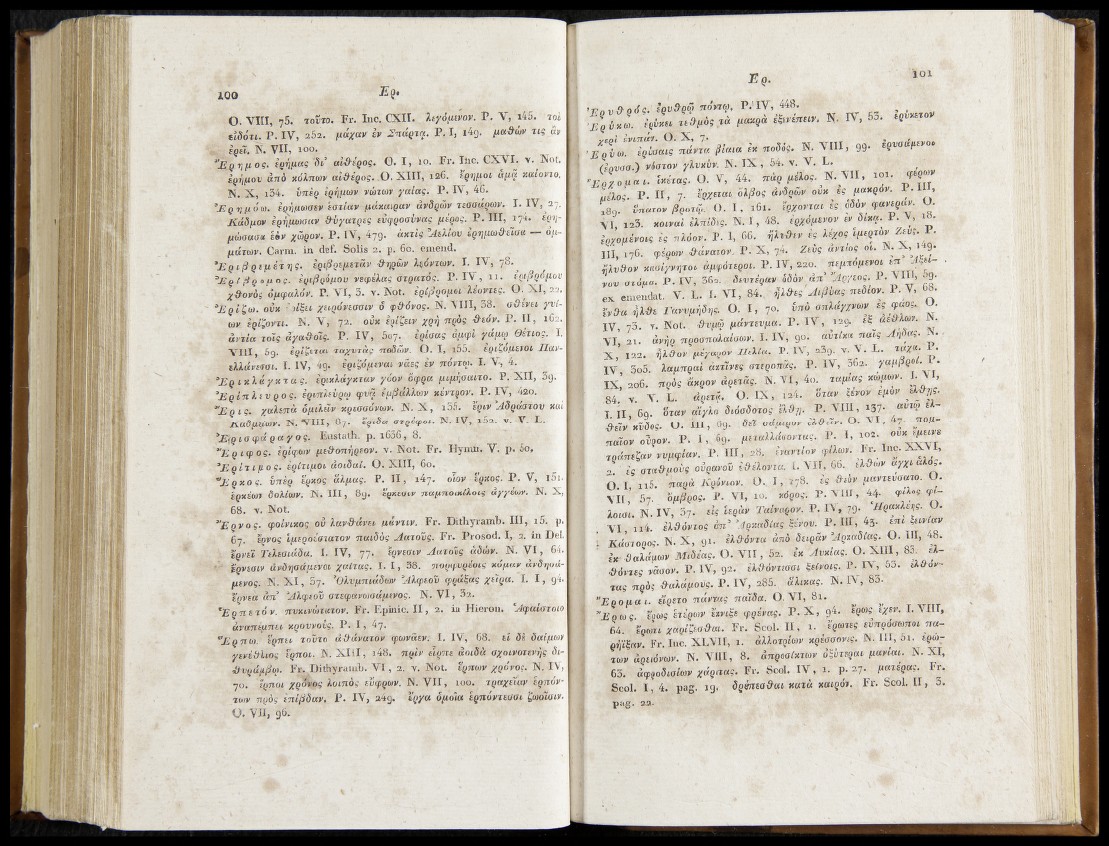 100
Ἐρ.
O. VIII, 75. τοῦτο. Fr. Inc. CXII. λεγόμενον. P. V, 145. τοὶ
εἰδότι. P. IV, 252. μάχαν ἐν Σπάρτᾳ. P. I, 149. μαθὼν τις ἂν
ἐρεῖ. N. VII, 100.
Ἔρημος. ἐρήμας δι' αἰθέρος. O. I, 10. Fr. Inc. CXVI. v. Not.
ἐρήμου ἀπὸ κόλπων αἰθέρος. O. XIII, 126. ἔρημοι ἁμᾶ καίοντο.
N. X, 134. ὑπὲρ ἐρήμων νώτων γαίας. P. IV, 46.
Ἐρημόω. ἐρήμωσεν ἑστίαν μάκαιραν ἀνδρῶν τεσσάρων. I. IV, 27.
Κάδμον ἐρήμωσαν θύγατρες εὐφροσύνας μέρος. P. III, 174. ἐρη-
μώσαισα ἑὸν χῶρον. P. IV, 479. ἀκτὶς Ἀελίου ἐρημωθεῖσα — ὀμ-
μάτων. Carm. in def. Solis 2. p. 60. emend.
Ἐριβρεμέτης. ἐριβρεμετᾶν θηρῶν λεόντων. I. IV, 78.
Ἐρίβρομος. ἐριβρόμου νεφέλας στρατός. P. IV, 11. ἐριβρόμου
χθονὸς ὀμφαλόν. P. VI, 3. v. Not. ἐρίβρομοι λέοντες. O. XI, 22.
Ἐρίζω. οὐκ ἐρίζει χειρόνεσσιν ὁ φθόνος. N. VIII, 38. σθένει γυί-
ων ἐρίζοντι. N. V, 72. οὐκ ἐρίζειν χρὴ πρὸς θεόν. P. II, 162.
ἀντία τοῖς ἀγαθοῖς. P. IV, 507. ἐρίσας ἀμφὶ γάμῳ Θέτιος. I.
VIII, 59. ἐρίζεται ταχυτὰς ποδῶν. O. I, 155. ἐριζόμενοι Παν-
ελλάνεσσι. I. IV, 49. ἐριζόμεναι νᾶες ἐν πόντῳ. I. V, 4.
Ἐρικλάγκτας. ἐρικλάγκταν γόον ὄφρα μιμήσαιτο. P. XII, 39.
Ἐρίπλευρος. ἐριπλεύρῳ φυᾷ ἐμβάλλων κέντρον. P. IV, 420.
Ἔρις. χαλεπὰ ὁμιλεῖν κρεσσόνων. N. X, 135. ἔριν Ἀδράστου καὶ
Καδμείων. N. VIII, 87. ἐρίδα στρέφοι. N. IV, 152. v. V. L.
Ἐρισφάραγος. Eustath. p. 1636, 8.
Ἔριφος. ἐρίφων μεθοπήρεον. v. Not. Fr. Hymn. V. p. 60.
Ἐρίτιμος. ἐρίτιμοι ἀοιδαί. O. XIII, 60.
Ἕρκος. ὑπὲρ ἕρκος ἅλμας. P. II, 147. οἷον ἕρκος. P. V, 151.
ἑρκέων δολίων. N. III, 89. ἕρκεσιν παμποικίλοις ἀγγέων. N. X,
68. v. Not.
Ἔρνος. φοίνικος οὐ λανθάνει μάντιν. Fr. Dithyramb. III, 15. p.
67. ἔρνος ἱμεροέστατον παιδὸς Λατοῦς. Fr. Prosod. I, 2. in Del.
ἔρνεϊ Τελεσιάδα. I. IV, 77. ἔρνεσιν Λατοῦς ἀδών. N. VI, 64.
ἔρνεσιν ἀνδησάμενοι χαίτας. I. I, 38. πορφυρέοις κόμαν ἀνδησά-
μενος. N. XI, 37. Ὀλυμπιάδων Ἀλφεοῦ φράξας χεῖρα. I. I, 94.
ἔρνεα ἀπ' Ἀλφεοῦ στεφανωσάμενος. N. VI, 32.
Ἑρπετόν. πυκινώτατον. Fr. Epinic. II, 2. in Hieron. Ἁφαίστοιο
ἀναπέμπει κρουνούς. P. I, 47.
Ἕρπω. ἕρπει τοῦτο ἀθάνατον φωνᾶεν. I. IV, 68. εἰ δὲ δαίμων
γενέθλιος ἕρποι. N. XIII, 148. πρὶν εἷρπε ἀοιδὰ σχοινοτενὴς δι-
θυράμβῳ. Fr. Dithyramb. VI, 2. v. Not. ἕρπων χρόνος. N. IV,
70. ἕρποι χρόνος λοιπὸς εὔφρων. N. VII, 100. τραχεῖαν ἑρπόν-
των πρὸς ἐπίβδαν. P. IV, 249. ἔργα ὁμοῖα ἑρπόντεσσι ζωοῖσιν.
O. VII, 96.
Ἐρ.
101
Ἐρυθρός. ἐρυθρῷ πόντῳ. P. IV, 448.
Ἐρύκω. ἐρύκει τεθμὸς τὰ μακρὰ ἐξενέπειν. N. IV, 53. ἐρύκετον
χερὶ ἐνιπάν. O. X, 7.
Ἐρύω. ἐρύσαις πάντα βίαια ἐκ ποδός. N. VIII, 99. ἐρυσάμενοι
(ἐρυσσ.) νόστον γλυκύν. N. IX, 54. v. V. L.
Ἔρχομαι. ἱκέτας. O. V, 44. πὰρ μέλος. N. VII, 101. φέρων
μέλος. P. II, 7. ἔρχεται ὄλβος ἀνδρῶν οὐκ ἐς μακρόν. P. III,
189. ὕπατον βροτῷ. O. I, 161. ἔρχονται ἐς ὁδὸν φανεράν. O.
VI, 123. κοιναὶ ἐλπίδες. N. I, 48. ἐρχόμενον ἐν δίκᾳ. P. V, 18.
ἐρχομένοις ἐς πλόον. P. I, 66. ἦλθεν ἐς λέχος ἱμερτὸν Ζεύς. P.
III, 176. φέρων θάνατον. P. X, 74. Ζεὺς ἀντίος οἱ. N. X, 149.
ἤλυθον κασίγνητοι ἀμφότεροι. P. IV, 220. πεμπόμενοι ἐπ' Ἀξεί-
νου στόμα. P. IV, 362. δευτέραν ὁδὸν ἀπ' Ἄργεος. P. VIII, 59.
ex emendat. V. L. I. VI, 84. ἦλθες Λιβύας πεδίον. P. V, 68.
ἔνθα ἦλθε Γανυμήδης. O. I, 70. ὑπὸ σπλάγχνων ἐς φάος. O.
IV, 73. v. Not. θυμῷ μάντευμα. P. IV, 129. ἐξ ἀέθλων. N.
VI, 21. ἀνὴρ προσπαλαίσων. I. IV, 90. αὐτίκα παῖς Λήδας. N.
X, 122. ἦλθον μέγαρον Πελία. P. IV, 239. v. V. L. τάχα. P.
IV, 303. λαμπραὶ ἀκτῖνες στεροπᾶς. P. IV, 352. γαμβροί. P.
IX, 206. πρὸς ἄκρον ἀρετᾶς. N. VI, 40. ταμίας κώμων. I. VI,
84. v. V. L. ἀρετᾷ. O. IX, 124. ὅταν ξένον ἐμὸν ἔλθῃς.
I. II, 69. ὅταν αἴγλα διόσδοτος ἔλθῃ. P. VIII, 137. αὐτῷ ἐλ-
θεῖν κῦδος. O. III, 69. δεῖ σάμερον ἐλθεῖν. O. VI, 47. πομ-
παῖον οὖρον. P. I, 69. μεταλλάσσοντας. P. I, 102. οὐκ ἔμεινε
τράπεζαν νυμφίαν. P. III, 28. ἐναντίον φίλων. Fr. Inc. XXVI,
2. ἐς σταθμοὺς οὐρανοῦ ἐθέλοντα. I. VII, 66. ἐλθὼν ἄγχι ἁλός.
O. I, 115. παρὰ Κρόνιον. O. I, 178. ἐς θεὸν μαντεύσατο. O.
VII, 57. ὄμβρος. P. VI, 10. κόρος. P. VIII, 44. φίλος φί-
λοισι. N. IV, 37. εἰς ἱερὰν Ταίναρον. P. IV, 79. Ἡρακλέης. O.
VI, 114. ἐλθόντος ἀπ' Ἀρκαδίας ξένου. P. III, 43. ἐπὶ ξενίαν
Κάστορος. N. X, 91. ἐλθόντα ἀπὸ δειρᾶν Ἀρκαδίας. O. III, 48.
ἐκ θαλάμων Μιδέας. O. VII, 52. ἐκ Λυκίας. O. XIII, 83. ἐλ-
θόντες νᾶσον. P. IV, 92. ἐλθόντεσσι ξείνοις. P. IV, 53. ἐλθόν-
τας πρὸς θαλάμους. P. IV, 285. ἅλικας. N. IV, 83.
Ἔρομαι. εἴρετο πάντας παῖδα. O. VI, 81.
Ἔρως. ἔρως ἑτέρων ἔκνιξε φρένας. P. X, 94. ἔρως ἔχεν. I. VIII,
64. ἔρωτι χαρίζεσθαι. Fr. Scol. II, 1. ἔρωτες εὐπρόσωποι πα-
ρήϊξαν. Fr. Inc. XLVII, 1. ἀλλοτρίων κρέσσονες. N. III, 51. ἐρώ-
των ἀρειόνων. N. VIII, 8. ἀπροσίκτων ὀξύτεραι μανίαι. N. XI,
63. ἀφροδισίων χάριτας. Fr. Scol. IV, 1. p. 27. ματέρας. Fr.
Scol. I, 4. pag. 19. δρέπεσθαι κατὰ καιρόν. Fr. Scol. II, 3.
pag. 22.